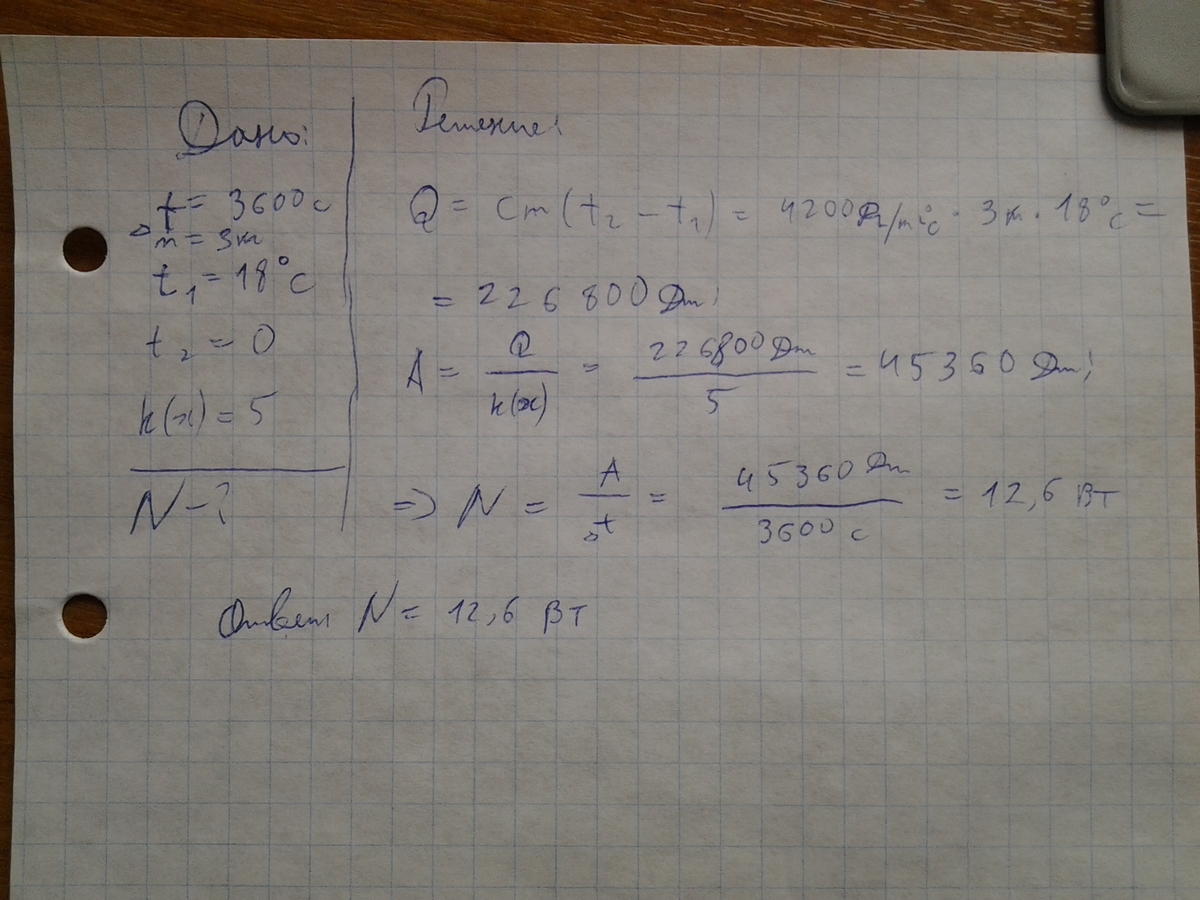 Дано:
Δt = 3600 с
m = 3 кг
t₁ = 18°C
t₂ = 0
k(x) = 5
N - ?
Решение:
Q = cm(t₂ - t₁) = 4200 · 3 кг · 18°C =
= 226800 Дж;
A = Q/k(x) = 226800 Дж/5 = 45360 Дж;
=> N = A/Δt = 45360 Дж/3600 с = 12,6 Вт
Ответ N = 12,6 Вт